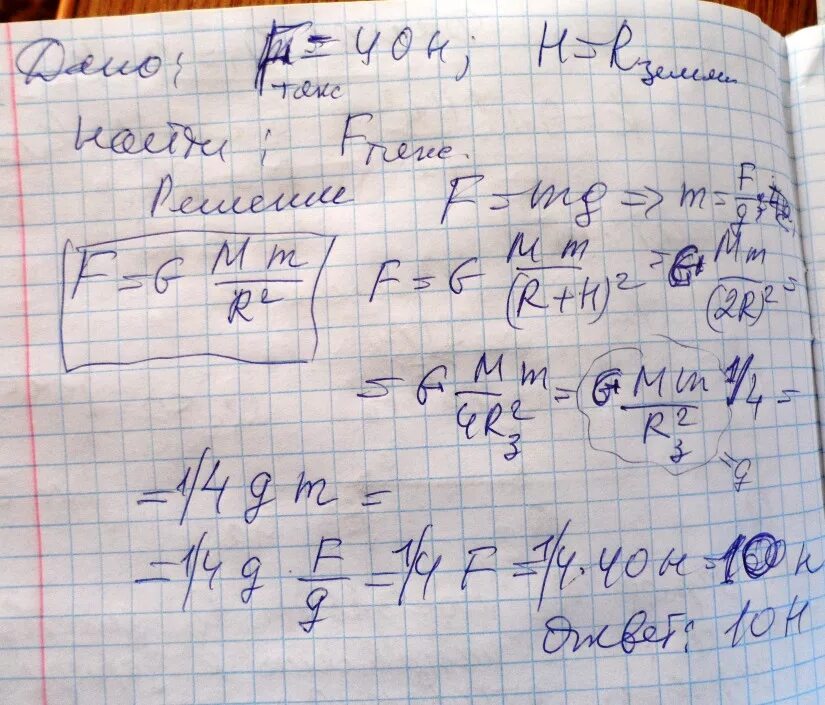 Дано: F тяж = 40 н; H = R земли
Найти: F тяж.
Решение F = mg => m = F/g
F = G Mm/R² F = G Mm/(R+H)² = G Mm/(2R)² =
= G Mm/4R₃² = G Mm/R₃² 1/4 =
= g
= 1/4 g m =
= 1/4 g · F/g = 1/4 F = 1/4 · 40 н = 10 н
Ответ: 10 Н